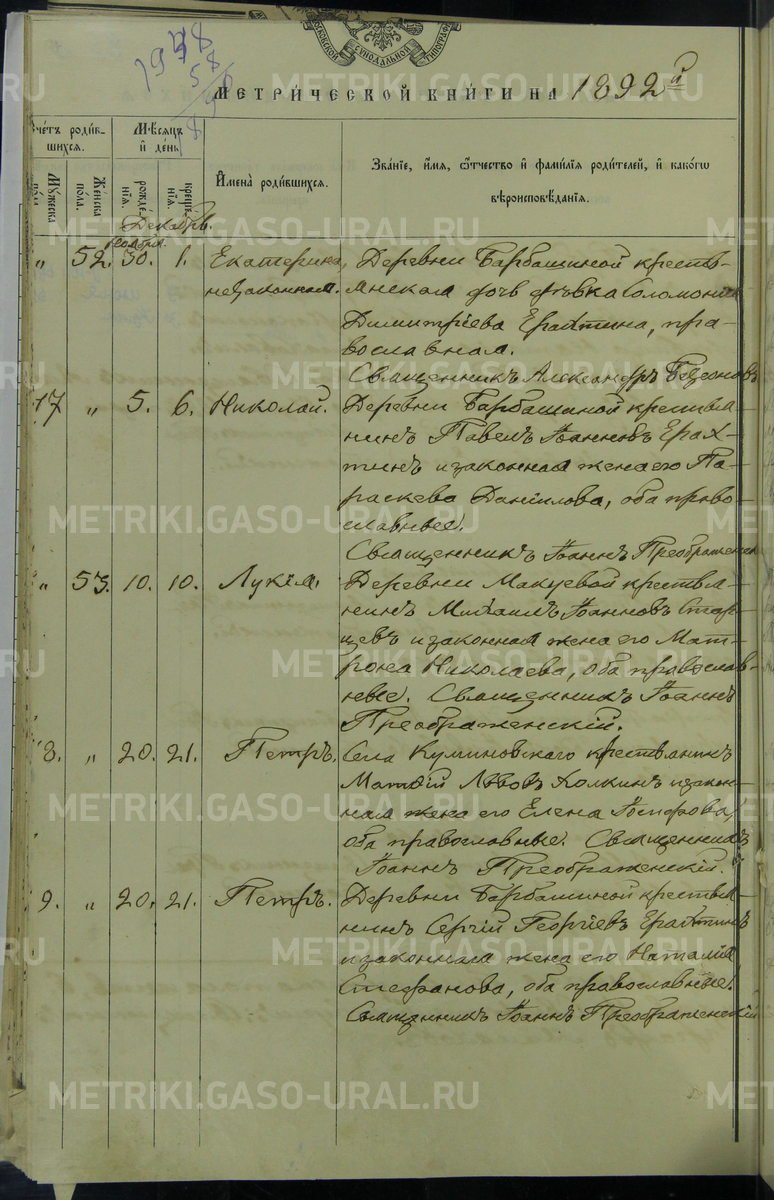 МОСКОВСКОЙ СУНОДАЛЬНОЙ ТИПОГРАФІИ
МЕТРИ́ЧЕСКОЙ КНИ́ГИ НА 1892й
Счетъ роди́вшихся.
Мѣсяцъ и день
Имена̀ роди́вшихся.
Зва́нїе, и́мя, ѻ҆́тчество и фами́лїя роди́телей, и како́гѡ
вѣроисповѣ́данїя.
Му́жеска по́ла.
Же́нска по́ла.
рожде́нїя
креще́нїя
Декабрь.
Ноября.
„ 52. 30. 1. Екатерина, Деревни Барбашиной кресть-
незаконная. янская дочь дѣвка Соломонія
Димитріева Ерахтина, пра-
вославная.
Священникъ Александръ
17 „ 5. 6. Николай. Деревни Барбашиной крестья-
нинъ Павелъ Іоанновъ Ерах-
тинъ и законная жена его Па-
раскева Даніилова, оба право-
славные.
Священникъ Іоаннъ Преображенскій
„ 53. 10. 10. Лукія. Деревни Макуевой крестья-
нинъ Михаилъ Іоанновъ Стар-
цевъ и законная жена его Мат-
рона Николаева, оба православ-
ные. Священникъ Іоаннъ
Преображенскій.
8. „ 20. 21. Петръ. Села крестьянинъ
Матѳій Львовъ Холкинъ и закон-
ная жена его Елена Іосифова,
оба православные. Священникъ
Іоаннъ Преображенскій.
9. „ 20. 21. Петръ. Деревни Барбашиной крестья-
нинъ Сергій Георгіевъ Ерахтинъ
и законная жена его Наталія
Стефанова, оба православные.
Священникъ Іоаннъ Преображенскій
METRIKI.GASO-URAL.RU